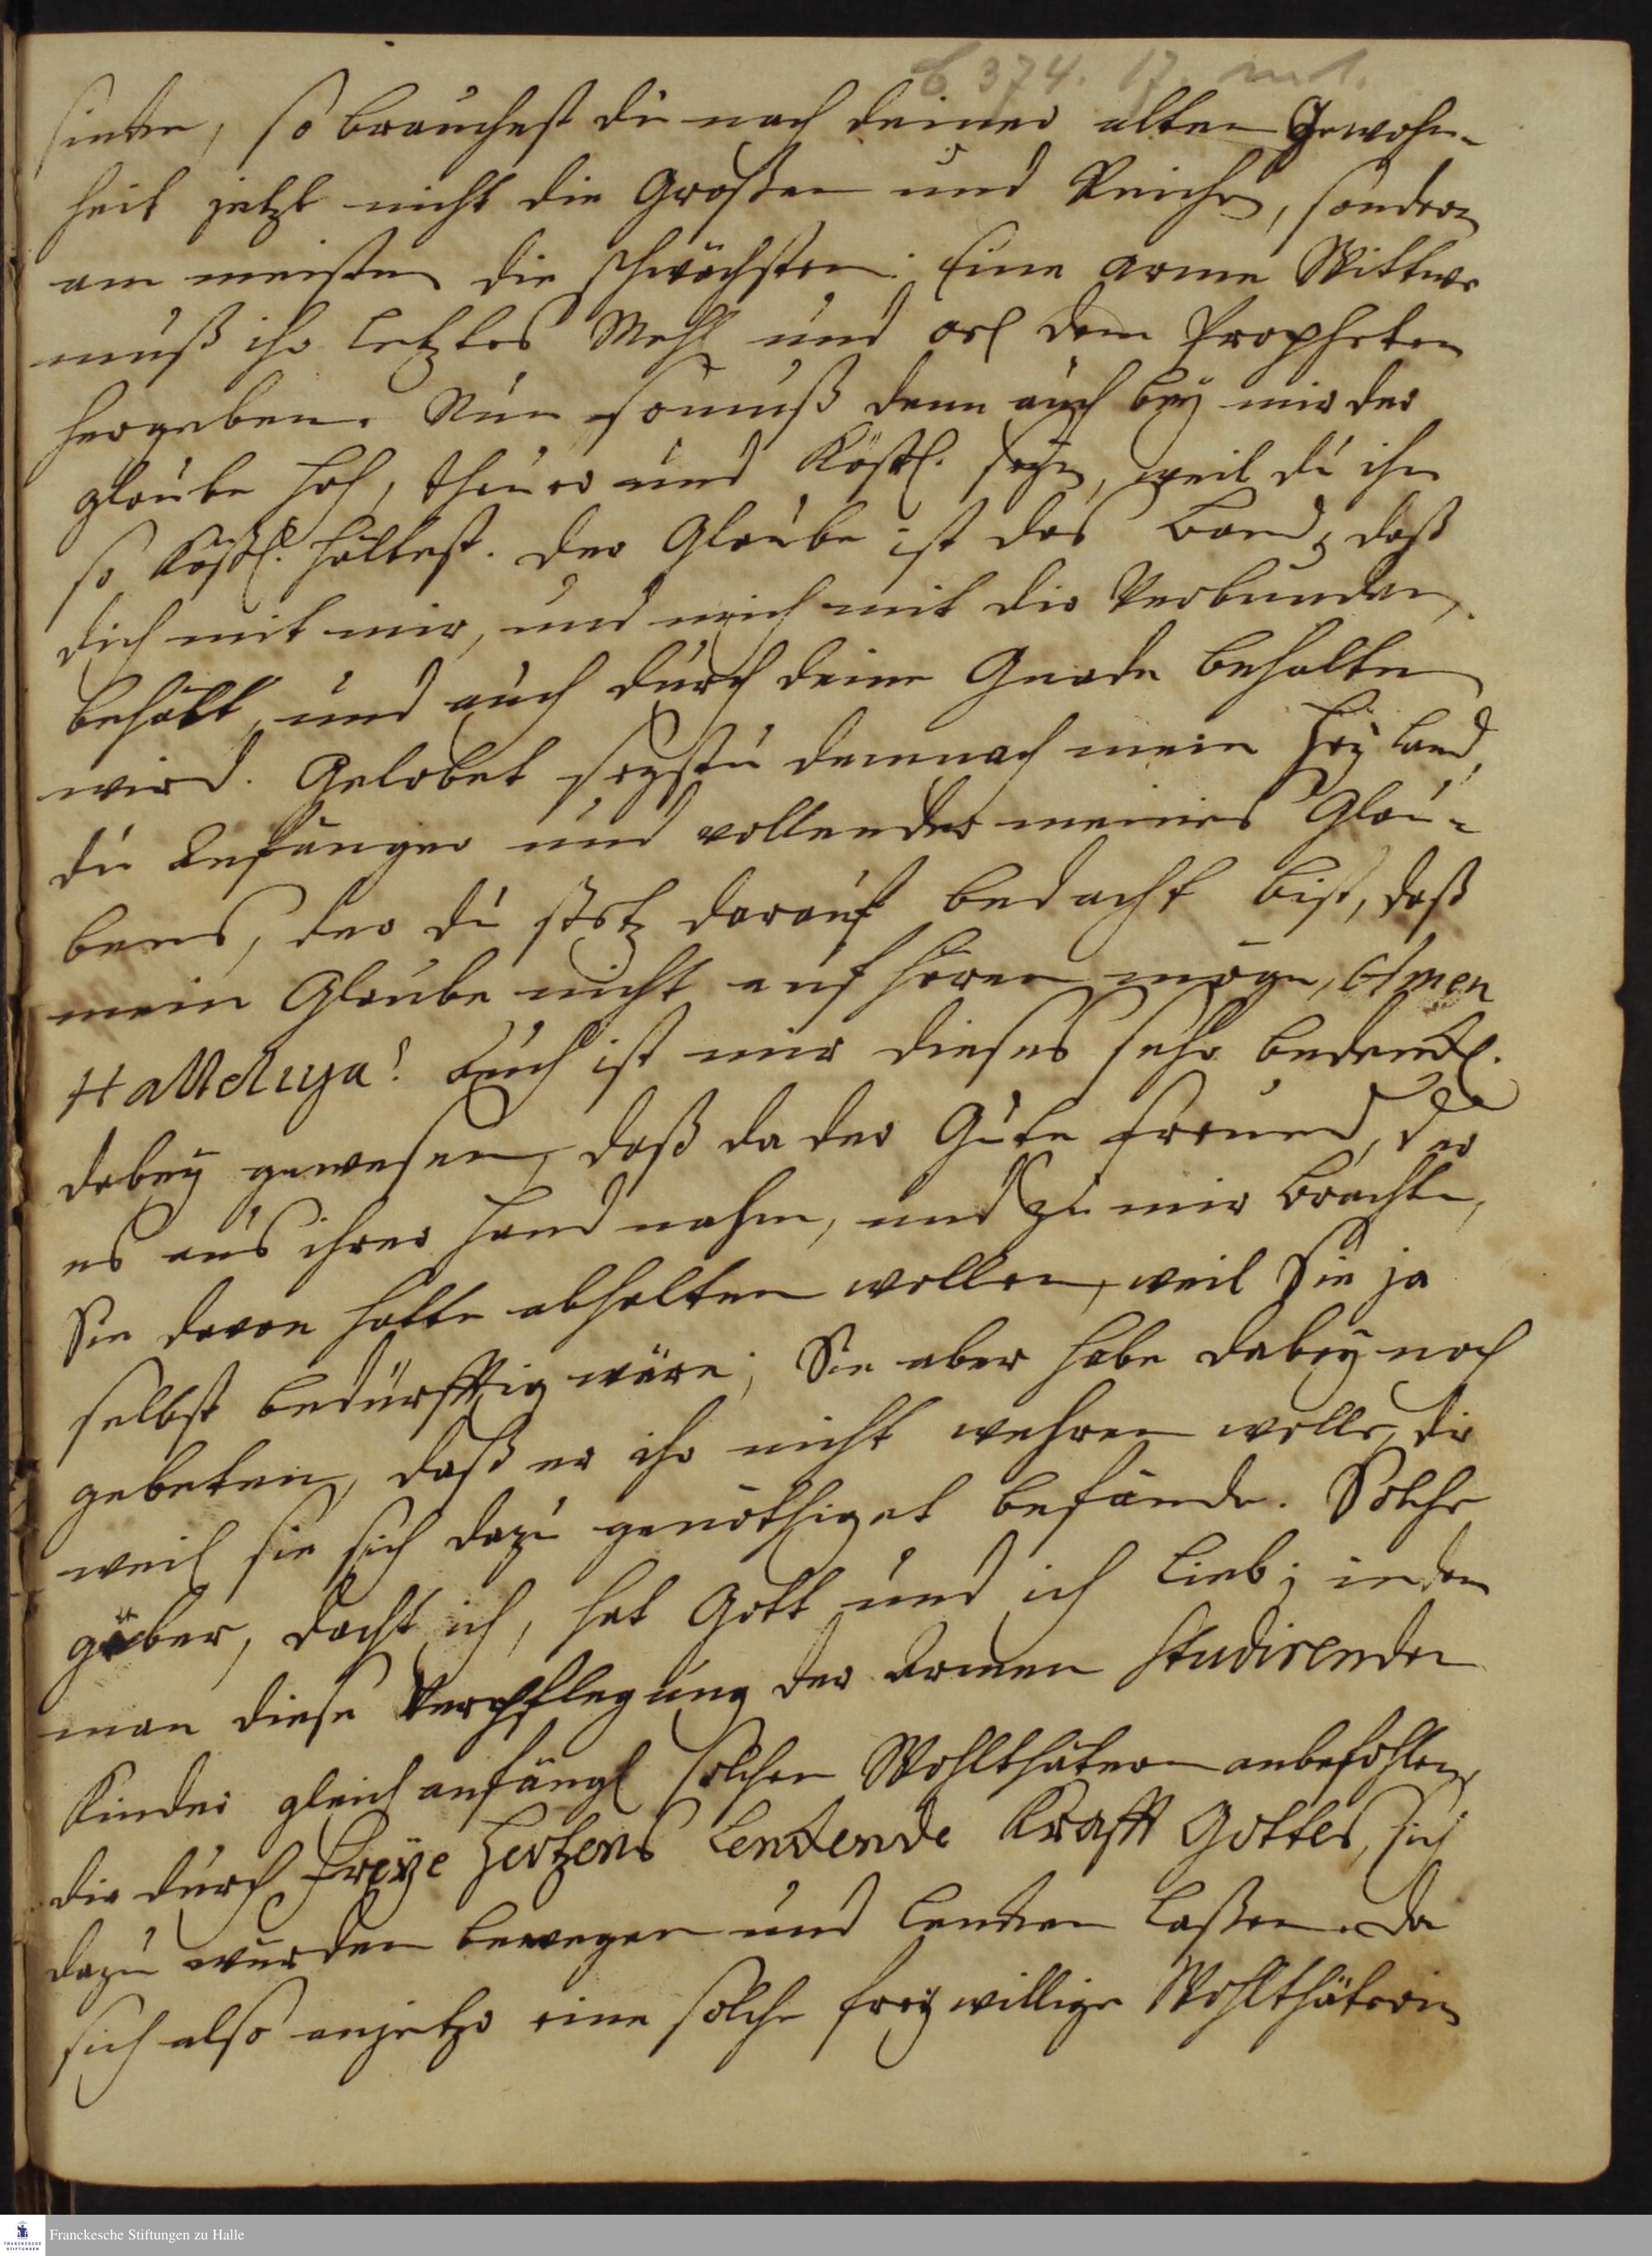 b 374. 17.
sinken, so brauchest du nach deiner alten Gewohn-
heit jetzt nicht die Großen und Reichen, sondern
am meisten die schwächsten: Eine arme Wittwe
muß ihr letztes Mehl und oel dem Propheten
hergeben. Nun so muß denn auch bey mir der
glaube hoch, theuer und Köstl. seyn, weil du ihn
so Köstl. hältest. der Glaube ist das Band, daß
dich mit mir, und mich mit dir Verbunden,
behält, und auch durch deine Gnade behalten
wird. Gelobet seystu demnach mein Heyland,
du Anfänger und vollender meines Glau-
bens, der du stetz darauf bedacht bist, daß
mein Glaube nicht aufhören möge, Amen
Halleluja! Auch ist mir dieses sehr bedenckl.
dabey gewesen, daß da der Gute freund, der
es aus ihrer Hand nahm, und zu mir brachte,
Sie davon hatte abhalten wollen, weil Sie ja
selbst bedürfftig wäre; Sie aber habe dabey noch
gebeten, daß er ihr nicht wehren wolle, die
weil sie sich dazu genöthiget befände. Solche
geber, dacht ich, hat Gott und ich lieb; indem
man diese Verpflegung der Armen studirenden
Kinder gleich anfängl solchen Wohlthätern anbefohlen,
die durch freye Hertzens lenckende Krafft Gottes, sich
dazu würden bewegen und lencken laßen. Da
sich also anjetzo eine solche freywillige Wohlthäterin
Franckesche Stiftungen zu Halle
FRANCKESCHE
STIFTUNGEN